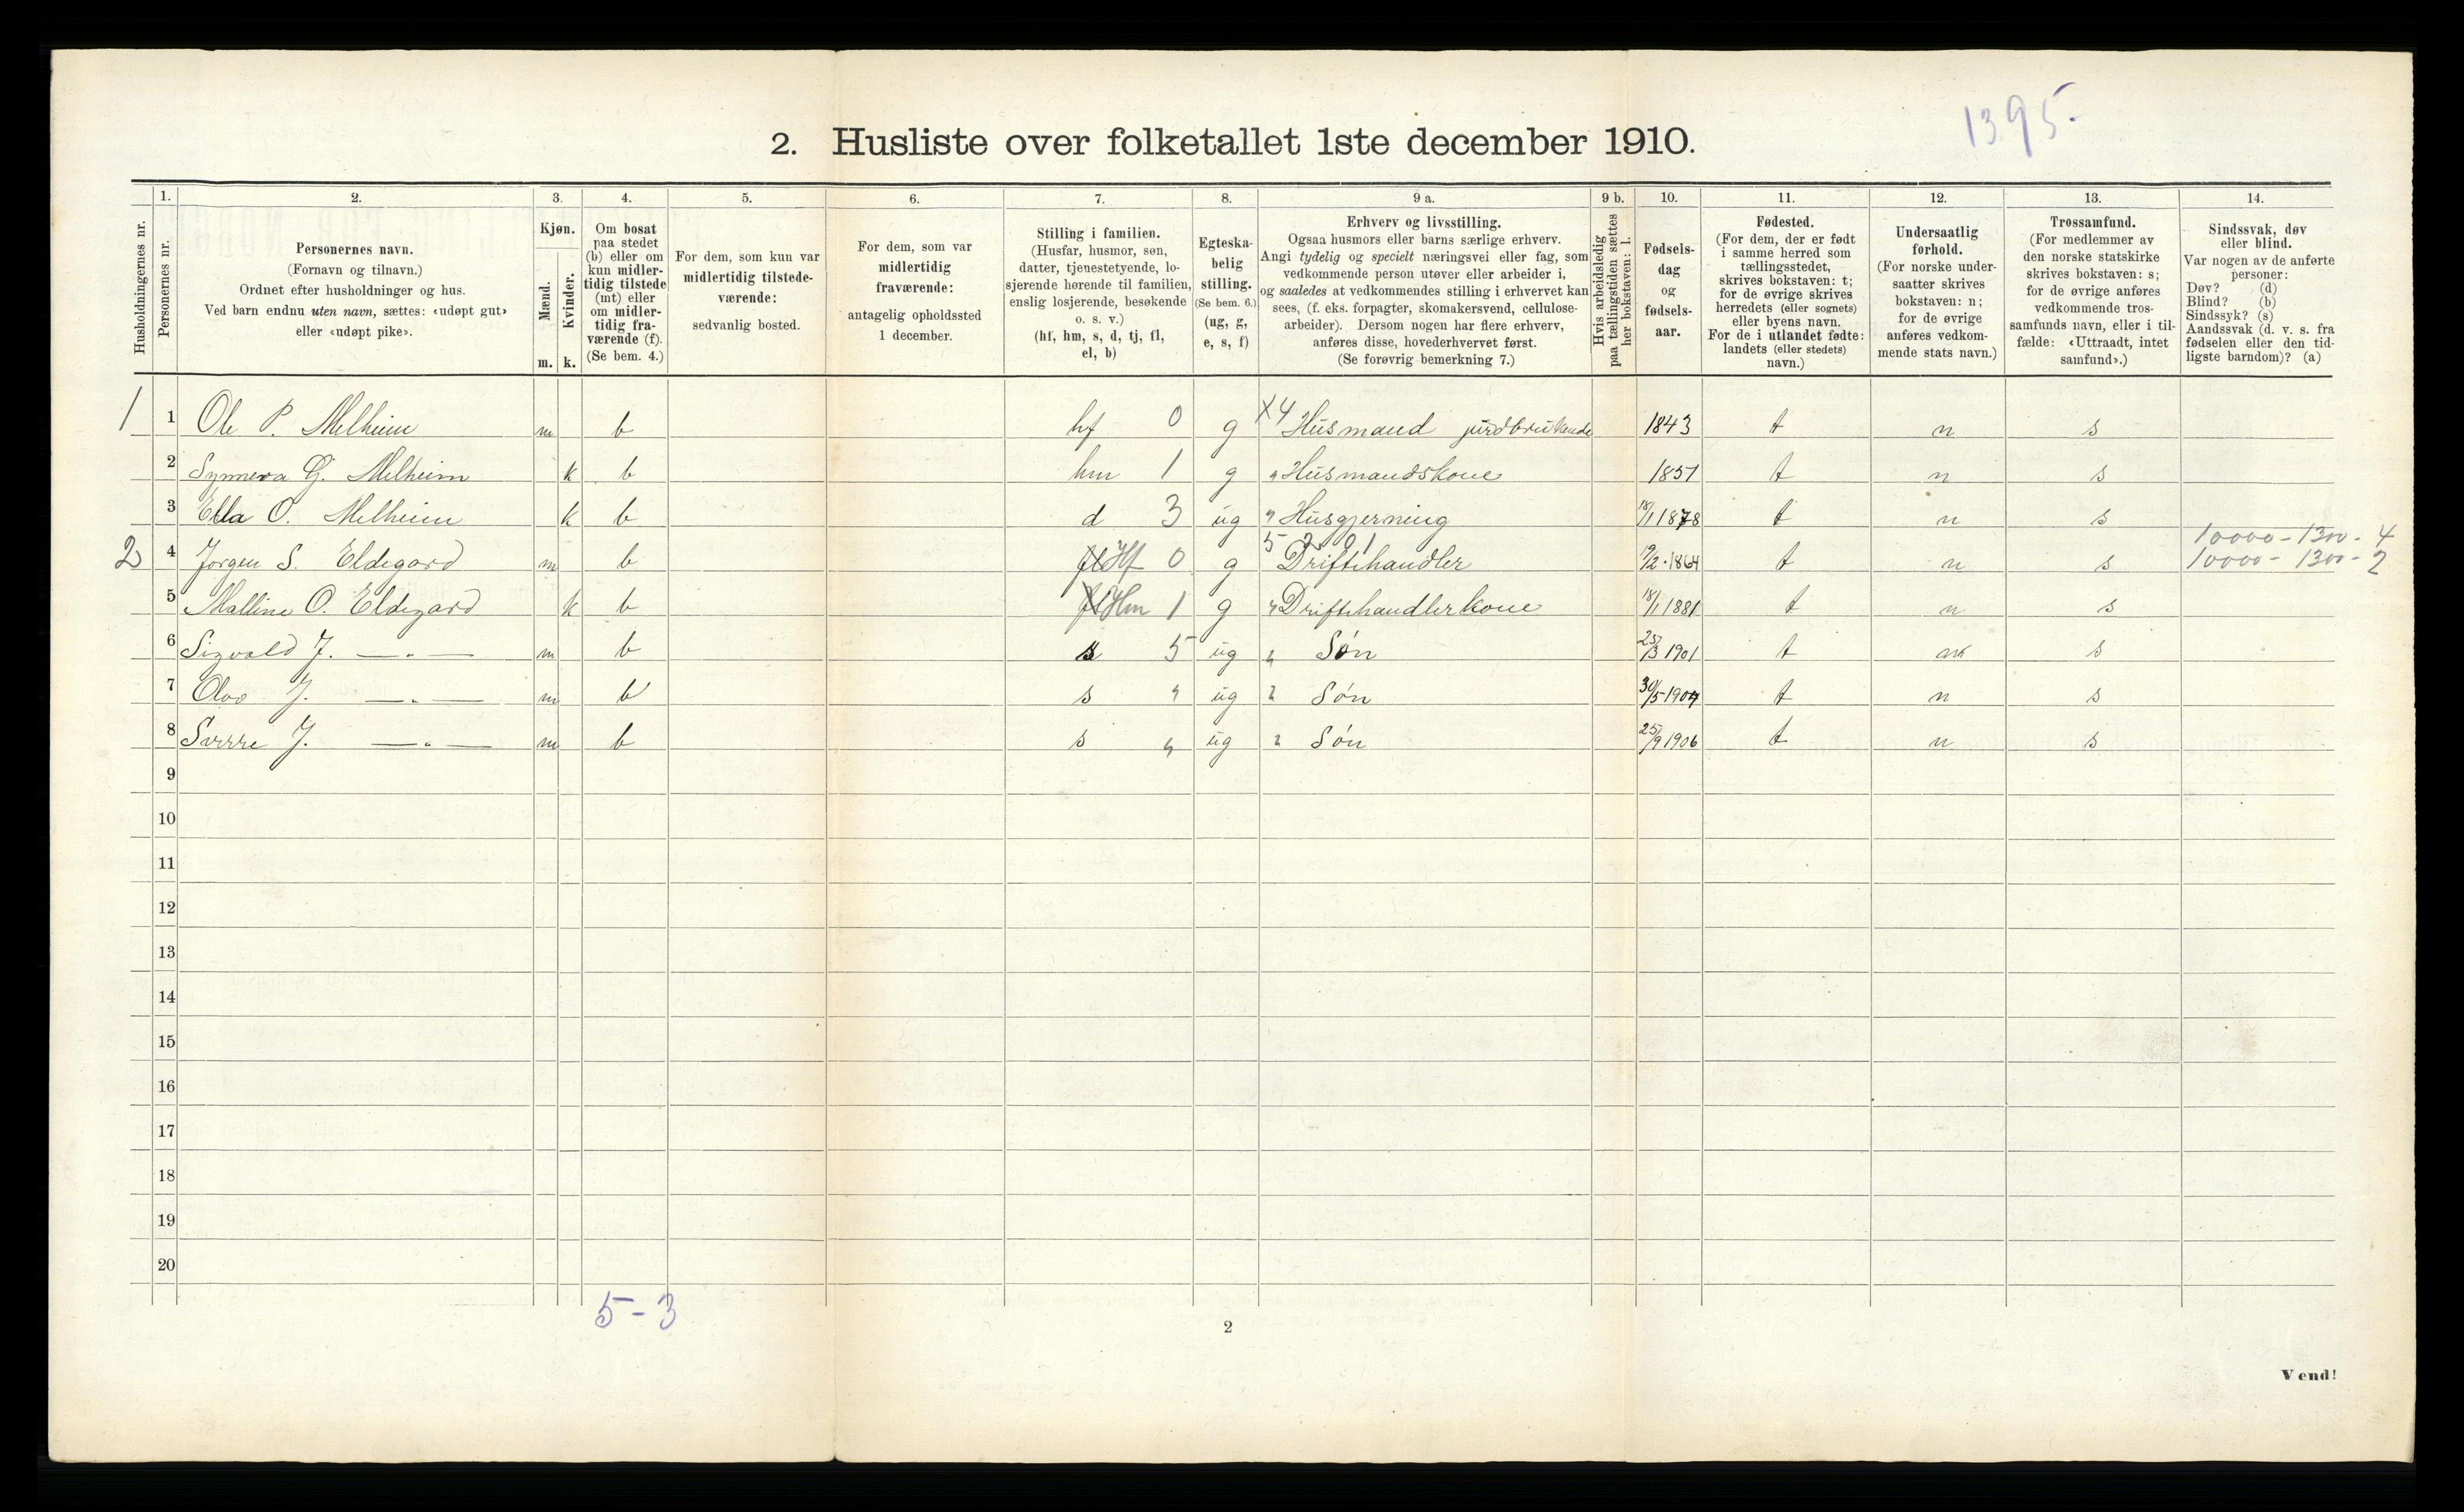 1395-
2. Husliste over folketallet 1ste december 1910.
1. 2. 3. 4. 5. 6. 7. 8. 9 a. 9 b. 10. 11. 12. 13. 14.
Husholdningernes nr.
Personernes nr.
Personernes navn.
(Fornavn og tilnavn.)
Ordnet efter husholdninger og hus.
Ved barn endnu uten navn, sættes: «udøpt gut»
eller «udøpt pike».
Kjøn.
Mænd.
Kvinder.
m. k.
Om bosat
paa stedet
(b) eller om
kun midler-
tidig tilstede
(mt) eller
om midler-
tidig fra-
værende (f).
(Se bem. 4.)
For dem, som kun var
midlertidig tilstede-
værende:
sedvanlig bosted.
For dem, som var
midlertidig
fraværende:
antagelig opholdssted
1 december.
Stilling i familien.
(Husfar, husmor, søn,
datter, tjenestetyende, lo-
sjerende hørende til familien,
enslig losjerende, besøkende
o. s. v.)
(hf, hm, s, d, tj, fl,
el, b)
Egteska-
belig
stilling.
(Se bem. 6.)
(ug, g,
e, s, f)
Erhverv og livsstilling.
Ogsaa husmors eller barns særlige erhverv.
Angi tydelig og specielt næringsvei eller fag, som
vedkommende person utøver eller arbeider i,
og saaledes at vedkommendes stilling i erhvervet kan
sees, (f. eks. forpagter, skomakersvend, cellulose-
arbeider). Dersom nogen har flere erhverv,
anføres disse, hovederhvervet først.
(Se forøvrig bemerkning 7.)
Hvis arbeidsledig
paa tællingstiden sættes
her bokstaven: l.
Fødsels-
dag
og
fødsels-
aar.
Fødested.
(For dem, der er født
i samme herred som
tællingsstedet,
skrives bokstaven: t;
for de øvrige skrives
herredets (eller sognets)
eller byens navn.
For de i utlandet fødte:
landets (eller stedets)
navn.)
Undersaatlig
forhold.
(For norske under-
saatter skrives
bokstaven: n;
for de øvrige
anføres vedkom-
mende stats navn.)
Trossamfund.
(For medlemmer av
den norske statskirke
skrives bokstaven: s;
for de øvrige anføres
vedkommende tros-
samfunds navn, eller i til-
fælde: «Uttraadt, intet
samfund».)
Sindssvak, døv
eller blind.
Var nogen av de anførte
personer:
Døv? (d)
Blind? (b)
Sindssyk? (s)
Aandssvak (d. v. s. fra
fødselen eller den tid-
ligste barndom)? (a)
1 1 Ole P. Melheim m b hf 0 g X4 Husmand jordbrukende 1843 t n s
2 Synneva G. Melheim k b hm 1 g " Husmandskone 1851 t n s
3 Ella O. Melheim k b d 3 ug " Husgjerning 18/1 1878 t n s
5 2 0 1 10000 - 1300 - 4
2 4 Jorgen S. Eldegard m b fl Hf 0 g Driftehandler 19/2 1864 t n s 10000 - 1300 - 2
5 Malline O. Eldegard k b fl Hm 1 g " Driftehandlerkone 18/1 1881 t n s
6 Sigvald J. — " — m b s 5 ug " Søn 25/3 1901 t n s
7 Olav J. — " — m b s " ug " Søn 30/5 1904 t n s
8 Sverre J. — " — m b s " ug " Søn 25/9 1906 t n s
9
10
11
12
13
14
15
16
17
18
19
20
5 - 3
2
Vend!